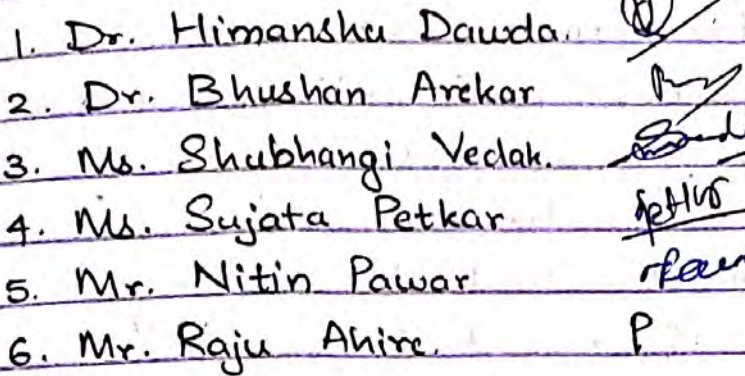 1. Dr. Himanshu Dawda.
2. Dr. Bhushan Arekar
3. Ms. Shubhangi Vedak.
4. Ms. Sujata Petkar
5. Mr. Nitin Pawar
6. Mr. Raju Ahire. P